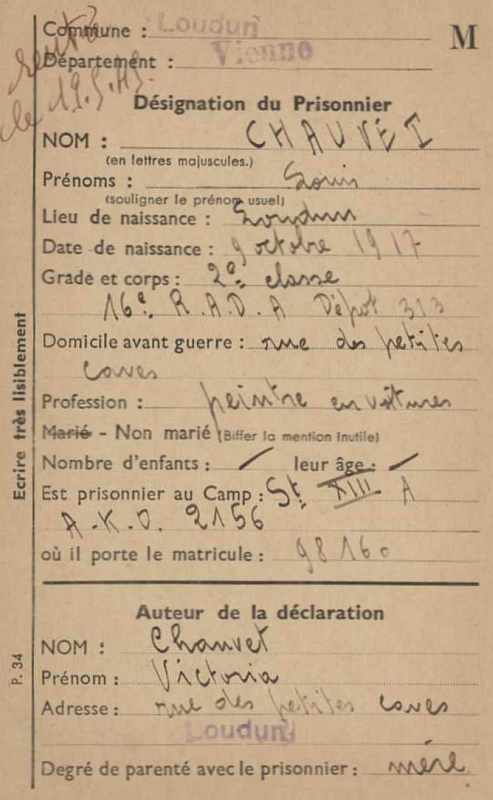 rentré
le 19.5.45.
Commune : Loudun
M
Département : Vienne
Désignation du Prisonnier
NOM : CHAUVET
(en lettres majuscules.)
Prénoms : Louis
(souligner le prénom usuel)
Lieu de naissance : Loudun
Date de naissance : 9 octobre 1917
Grade et corps : 2e classe
16e. R.A.D.A Dépot 313
Domicile avant guerre : rue des petites
caves
Profession : peintre en voitures
Marié - Non marié (Biffer la mention inutile)
Nombre d'enfants : / leur âge : /
Est prisonnier au Camp : St. XIII A
A.K.O. 2156
où il porte le matricule : 98160
Auteur de la déclaration
NOM : Chauvet
Prénom : Victoria
Adresse : rue des petites caves
Loudun
Degré de parenté avec le prisonnier : mère
Ecrire très lisiblement
P. 34